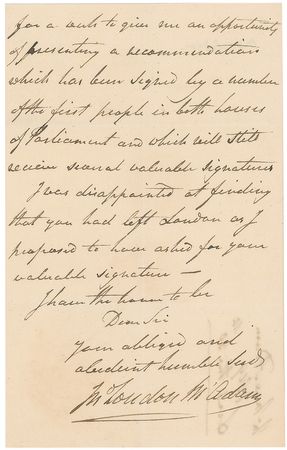 for a week to give me an opportunity
of presenting a recommendation
which has been signed by a number
of the first people in both houses
of Parliament and which will still
receive several valuable signatures
I was disappointed at finding
that you had left London as I
proposed to have asked for your
valuable signature —
I have the honor to be
Dear Sir
Your obliged and
obedient humble Servt
Jn Loudon McAdam